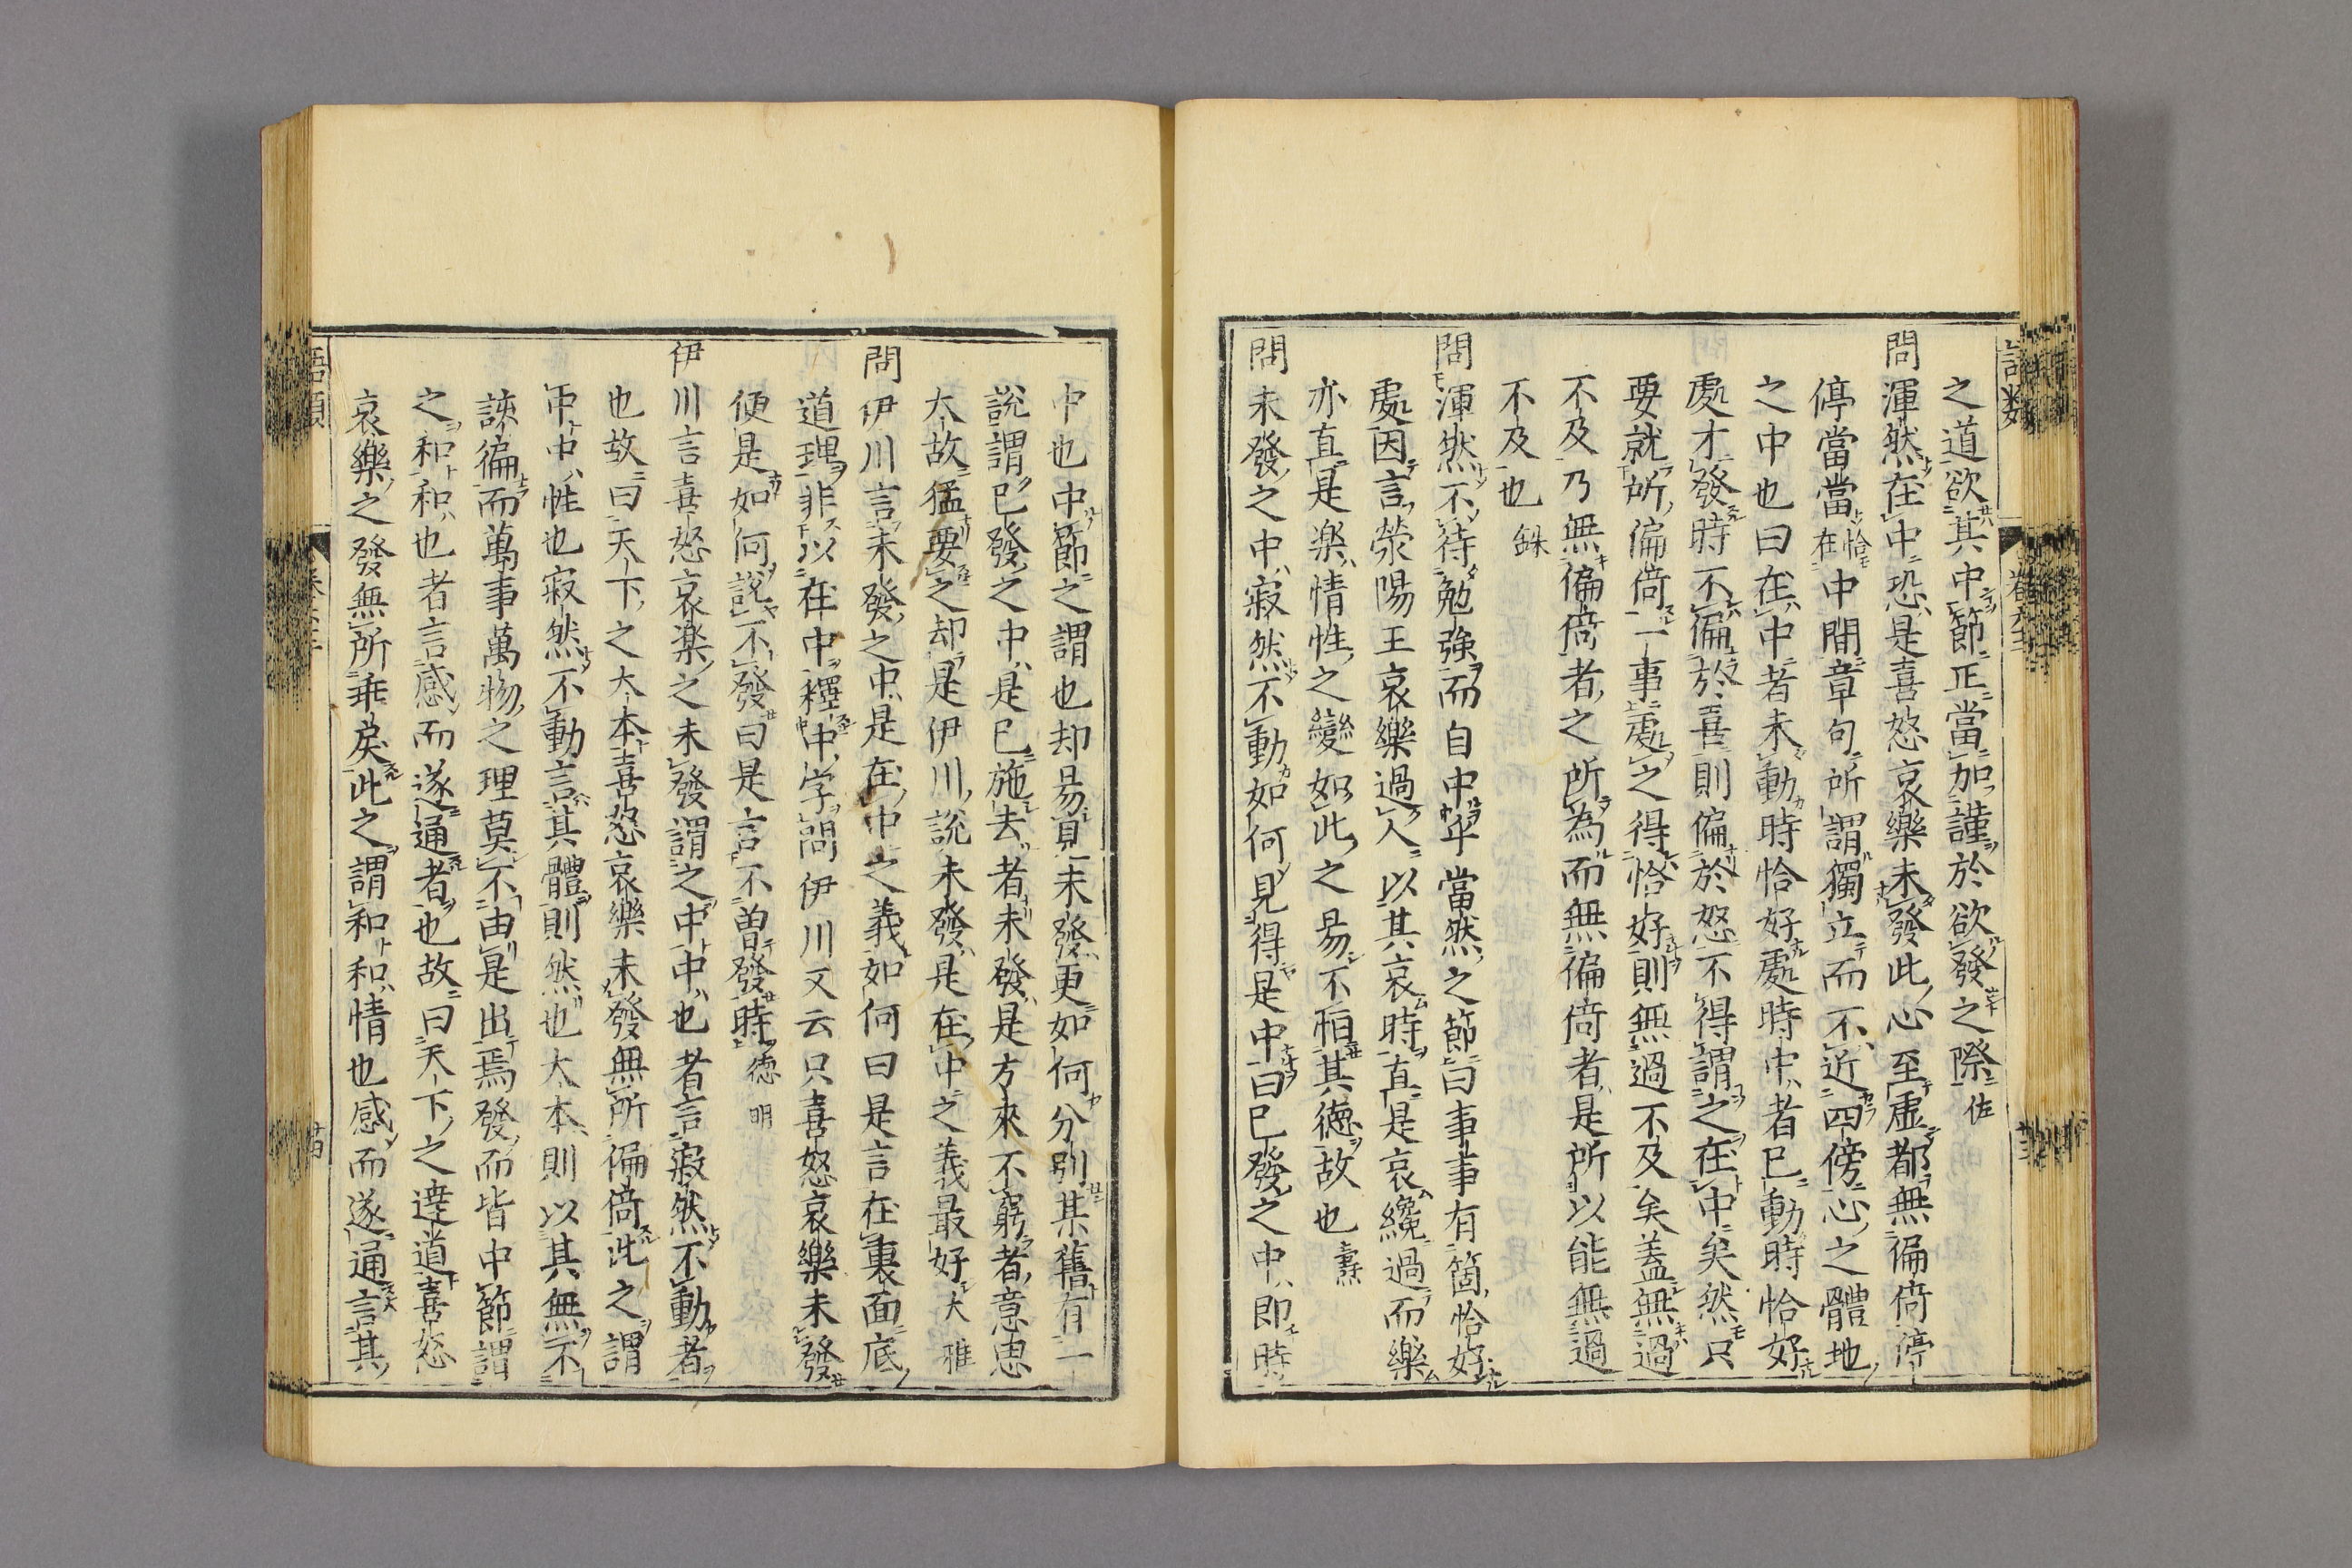 之道欲其中節正當加謹於欲發之際佐
問渾然在中恐是喜怒哀樂未發此心至虛都無偏倚停
停當當恰在中間章句所謂獨立而不近四傍心之體地
之中也曰在中者未動時恰好處時中者已動時恰好
處才發時不偏於喜則偏於怒不得謂之在中矣然只
要就所偏倚一事處之得恰好則無過不及矣蓋無過
不及乃無偏倚者之所為而無偏倚者是所以能無過
不及也銖
問渾然不待勉強而自中乎當然之節曰事事有箇恰好
處因言滎陽王哀樂過人以其哀時直是哀纔過而樂
亦直是楽情性之變如此之昜不恒其德故也燾
問未發之中寂然不動如何見得是中曰已發之中即時
中也中節之謂也却昜見未發更如何分別某舊有一
說謂已發之中是已施去者未發是方來不窮者意思
大故猛要之却是伊川說未發是在中之義最好大雅
問伊川言未發之中是在中之義如何曰是言在裏面底
道理非以在中釋中字問伊川又云只喜怒哀樂未發
便是如何說不發曰是言不曽發時德明
伊川言喜怒哀楽之未發謂之中中也者言寂然不動者
也故曰天下之大本喜怒哀樂未發無所偏倚此之謂
中中性也寂然不動言其體則然也大本則以其無不
該徧而萬事萬物之理莫不由是出焉發而皆中節謂
之和和也者言感而遂通者也故曰天下之達道喜怒
哀樂之發無所乖戾此之謂和和情也感而遂通言其
語類